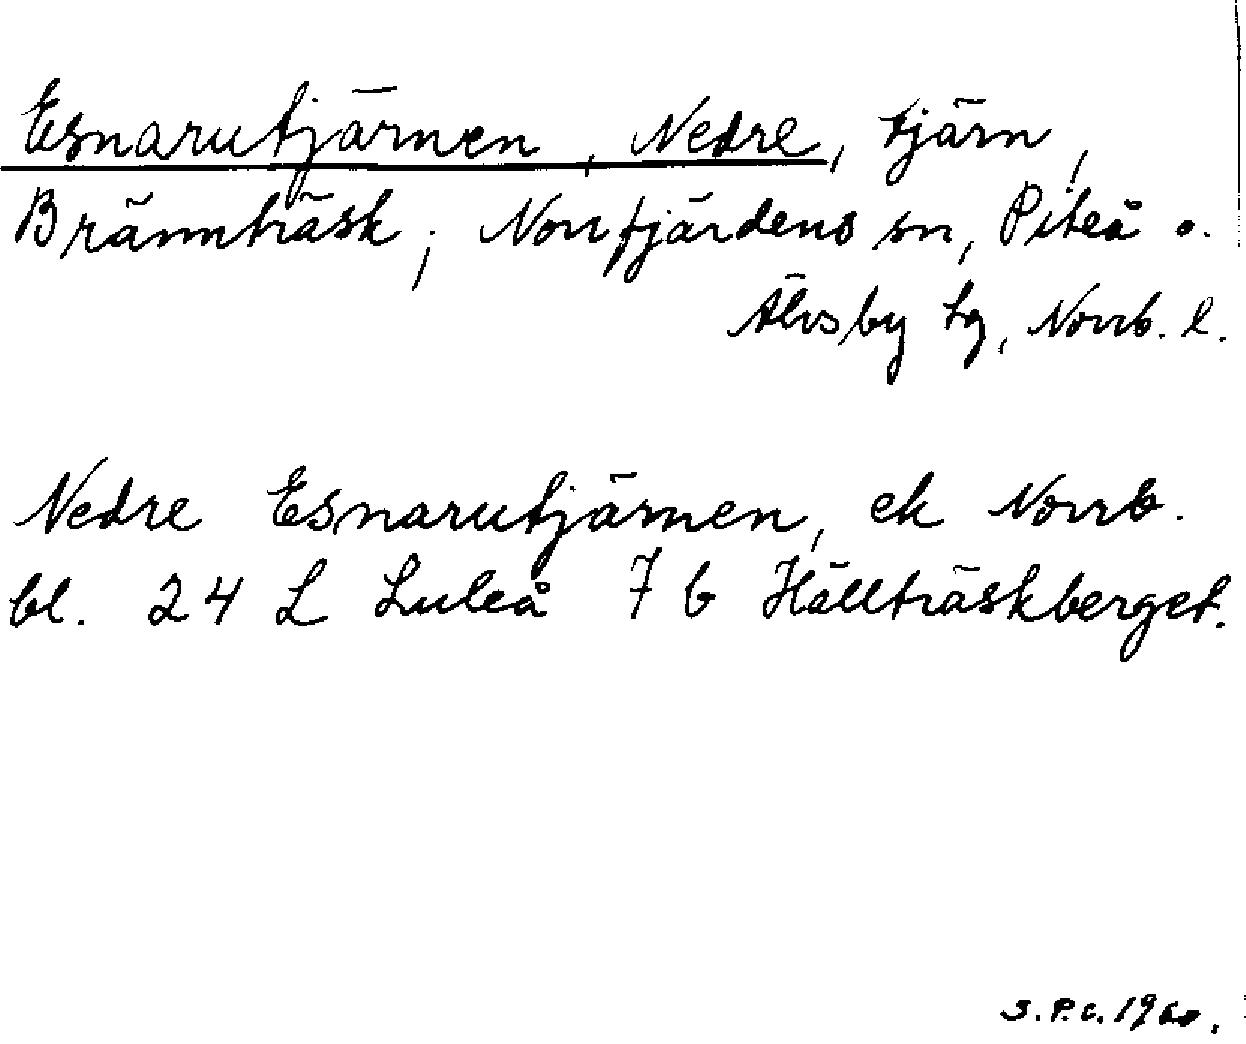 Esnarutjärnen, Nedre, tjärn,
Brännträsk; Norrfjärdens sn, Piteå o.
Älvsby tg, Norrb. l.
Nedre Esnarutjärnen, ek Norrb.
bl. 24 L Luleå 7 b Hällträskberget.
S.P.C. 1960.